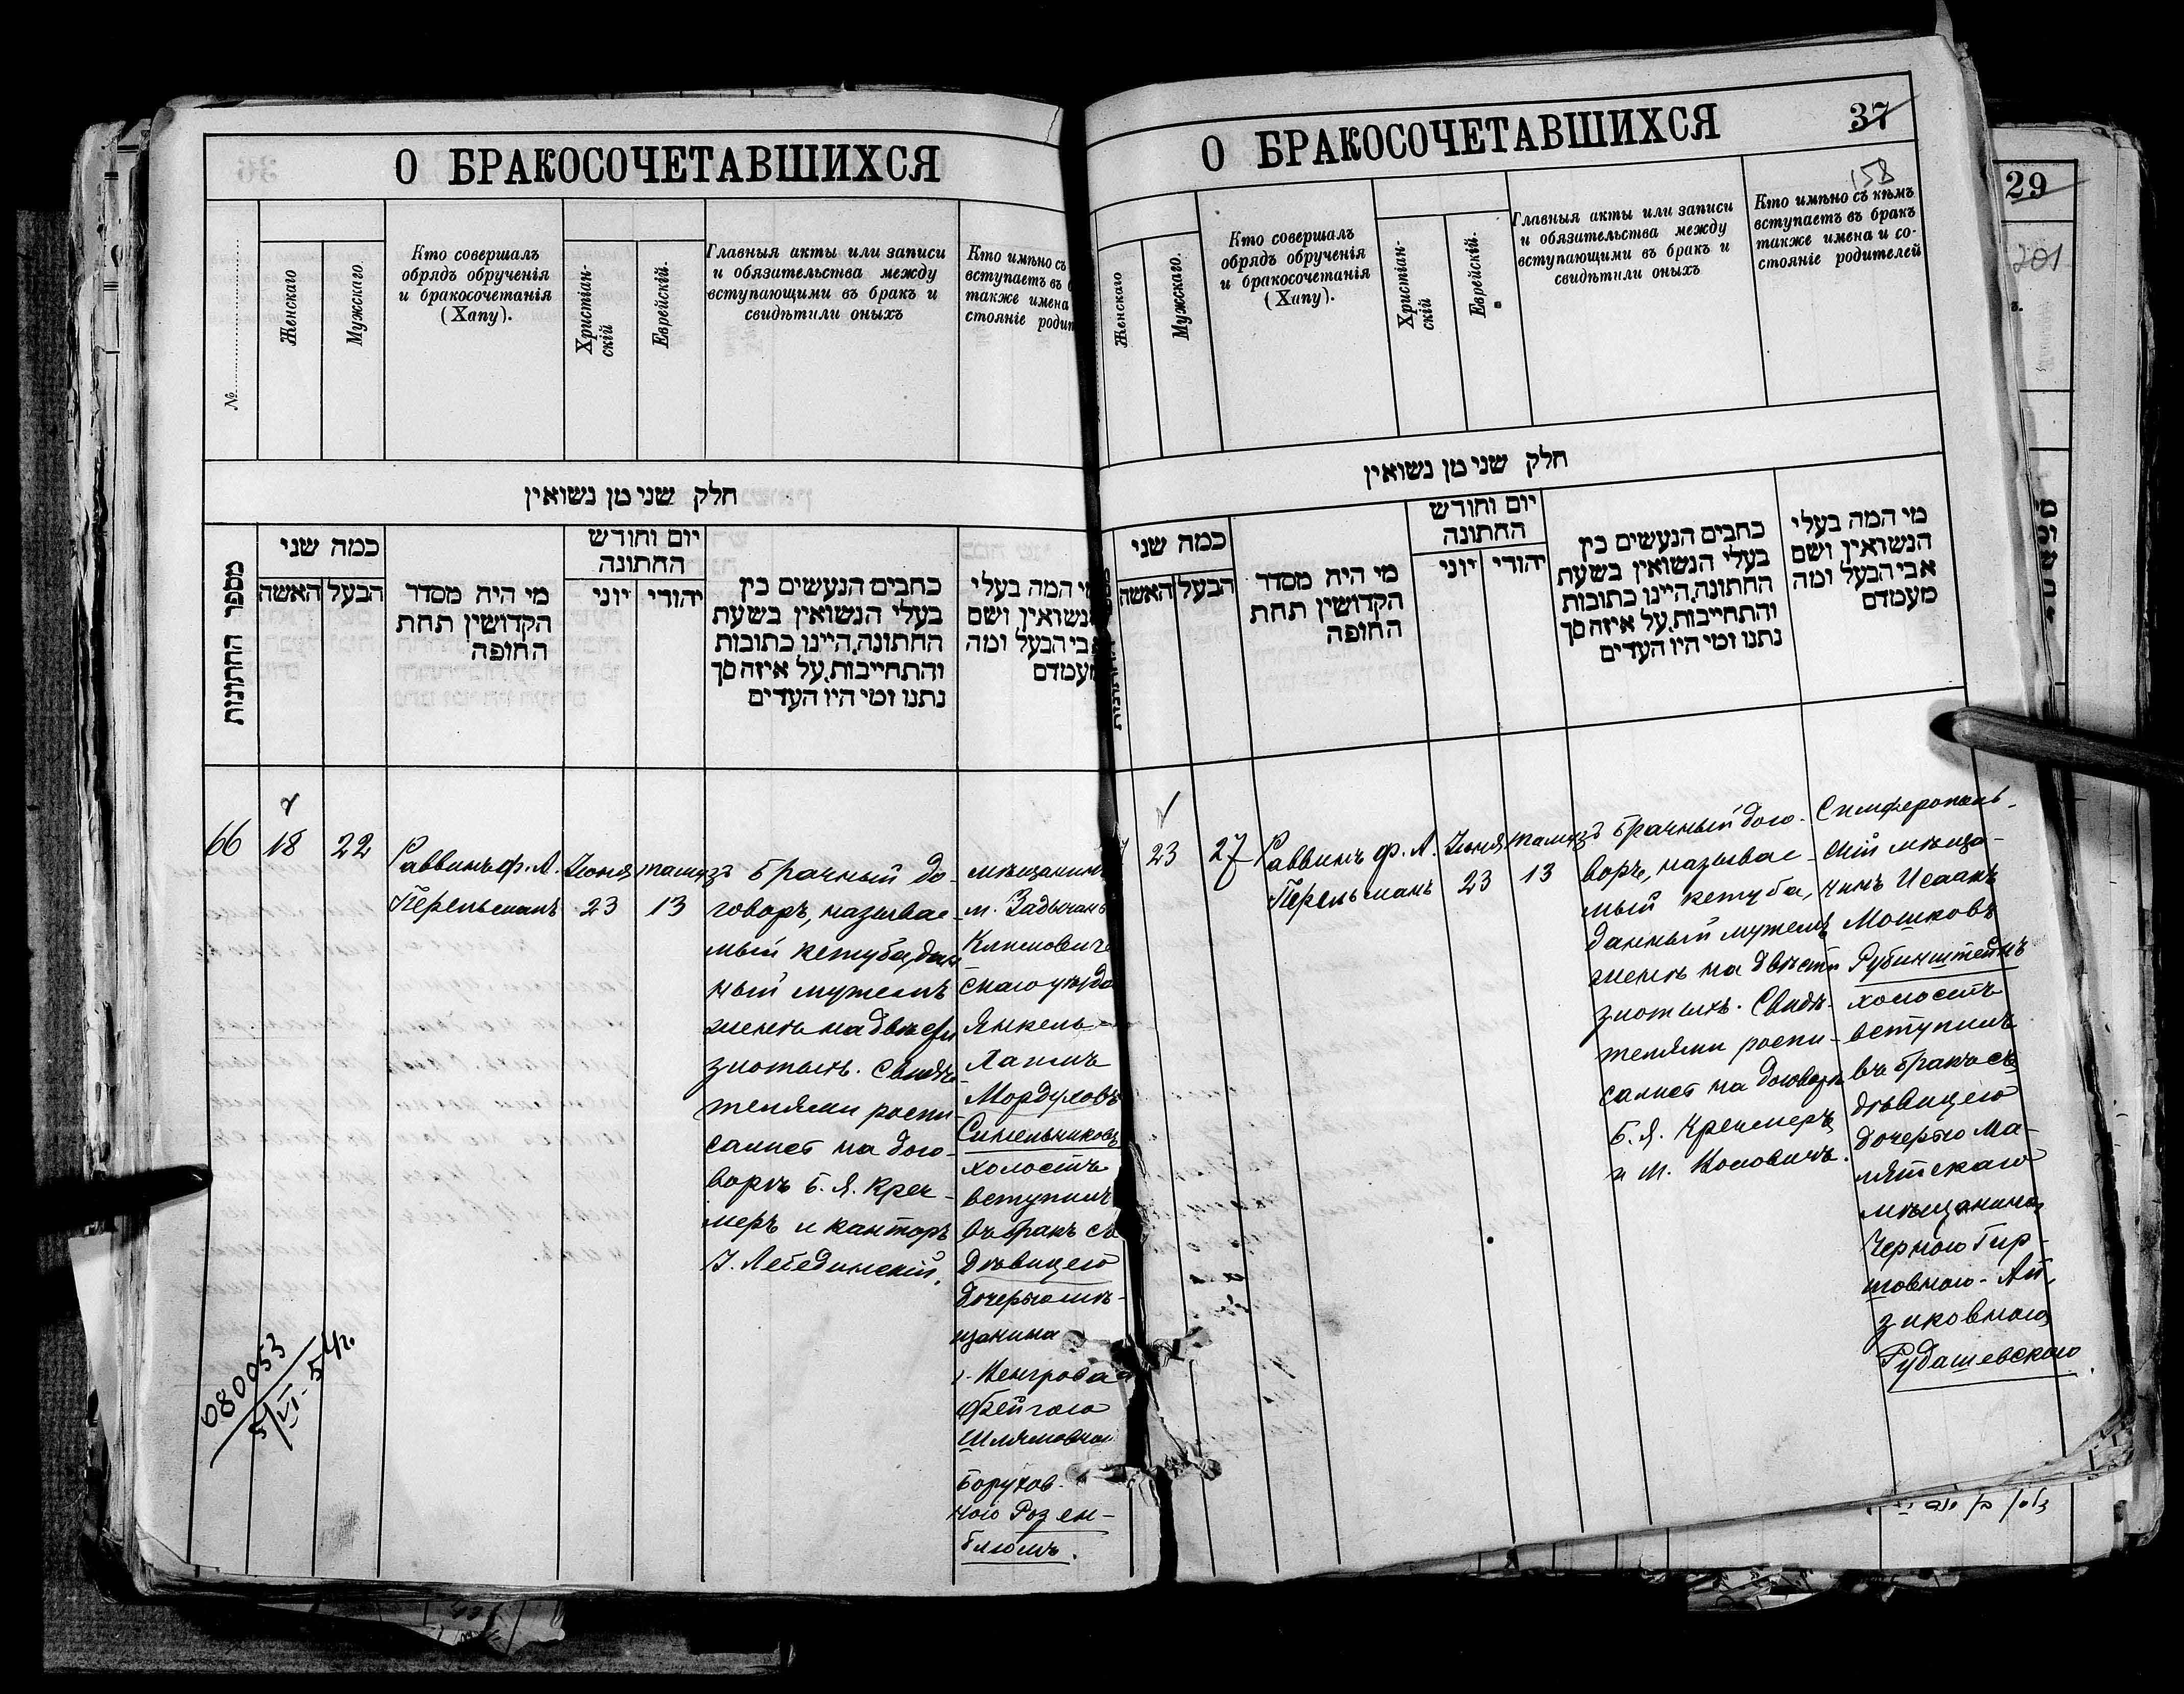 О БРАКОСОЧЕТАВШИХСЯ
№
Женскаго
Мужскаго
Кто совершалъ
обрядъ обрученія
и бракосочетанія
(Хапу).
Христіан-
скій
Еврейскій.
Главныя акты или записи
и обязательства между
вступающими въ бракъ и
свидѣтили оныхъ
Кто имѣно съ
вступаетъ въ
также имена
стояніе родит
חלק שני מן נשואין
מספר החתונות
כמה שני
האשה
הבעל
מי היה מסדר
הקדושין תחת
החופה
יום וחודש
החתונה
יוני
יהודי
כתבים הנעשים בין
בעלי הנשואין בשעת
החתונה.היינו כתובות
והתחייבות.על איזה סך
נתנו ומי היו העדים
מי המה בעלי
הנשואין ושם
אבי הבעל ומה
מעמדם
66
18
22
Раввинъ ф. А.
Перельманъ
Іюня
23
тамузъ
13
Брачный до-
говоръ, называе-
мый кетуба, дан
ный мужемъ
женѣ на двѣсти
злотыхъ. Свидѣ-
телями роспи-
сались на дого-
ворѣ Б. Я. Креч-
меръ и канторъ
І. Лебединскій.
мѣщанинъ
м. Задычанъ
Климович
скаго уѣзда
Янкель-
Хаимъ
Мордуховъ
Синельниковъ
холостъ
вступилъ
въ бракъ съ
дѣвицею
дочерью мѣ-
щанина
г. Венгрова
Фейгою
Шлемовною
Борухов-
ною Розен-
блюмъ.
080053
5/VI-54г.
О БРАКОСОЧЕТАВШИХСЯ
37
158
Женскаго
Мужскаго.
Кто совершалъ
обрядъ обрученія
и бракосочетанія
(Хапу).
Христіан-
скій
Еврейскій.
Главныя акты или записи
и обязательства между
вступающими въ бракъ и
свидѣтили оныхъ
Кто имѣно съ кѣмъ
вступаетъ въ бракъ
также имена и со-
стояніе родителей
חלק שני מן נשואין
כמה שני
האשה
הבעל
מי היה מסדר
הקדושין תחת
החופה
יום וחודש
החתונה
יוני
יהודי
כתבים הנעשים בין
בעלי הנשואין בשעת
החתונה.היינו כתובות
והתחייבות.על איזה סך
נתנו ומי היו העדים
מי המה בעלי
הנשואין ושם
אבי הבעל ומה
מעמדם
23
27
Раввинъ ф. А.
Перельманъ
Іюня
23
тамузъ
13
Брачный дого-
воръ, называе-
мый кетуба,
данный мужемъ
женѣ на двѣсти
злотыхъ. Свидѣ-
телями роспи-
сались на договорѣ
Б. Я. Кречмеръ
и М. Коловичъ.
Симферополь-
скій мѣща-
нинъ Исаакъ
Мошковъ
Рубинштейнъ
холостъ
вступилъ
въ бракъ съ
дѣвицею
дочерью Ма-
лятскаго
мѣщанина
Черною Гир-
шовною-Ай-
зиковною
Рудашевскою.
29
201